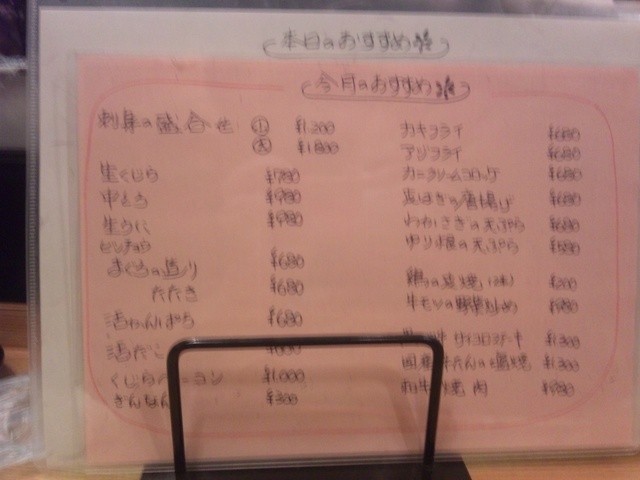 本日のおすすめ
今月のおすすめ
刺身の盛合せ ㊤ ¥1,200
㊅ ¥1,800
生くじら ¥780
中とろ ¥980
生うに ¥980
ビンチョウ
まぐろの造り ¥680
たたき ¥680
活かんぱち ¥680
活だこ
くじらベーコン ¥1,000
ぎんなん ¥300
カキフライ ¥680
アジフライ ¥680
カニクリームコロッケ ¥680
皮はぎの唐揚げ ¥680
わかさぎの天ぷら ¥680
ゆり根の天ぷら
鶏の炭焼 ¥200
牛モツの野菜炒め
牛サイコロステーキ ¥1,300
国産牛たんの塩焼 ¥1,300
和牛焼肉 ¥980